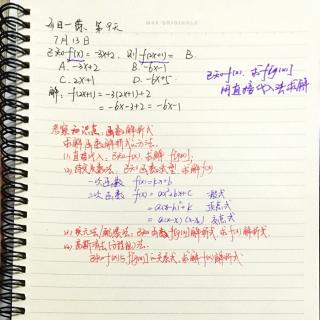 每日一薅, 第9天
7月13日
已知f(x)=-3x+2, 则f(2x+1)= B.
A. -3x+2 B. -6x-1
C. 2x+1 D. -6x+5
解: f(2x+1) = -3(2x+1)+2
= -6x-3+2 = -6x-1
已知f(x), 求f[g(x)]
用直接代入法求解
考察知识点: 函数解析式
求解函数解析式的方法:
(1) 直接代入: 已知f(x), 求解f[g(x)].
(2) 待定系数法: 已知函数类型, 求解f(x)
一次函数 f(x)=kx+b
二次函数 f(x)=ax²+bx+c 一般式
=a(x-h)²+k 顶点式
(3) 换元法/配凑法: 已知函数f[g(x)]解析式, 求f(x)解析式.
(4)